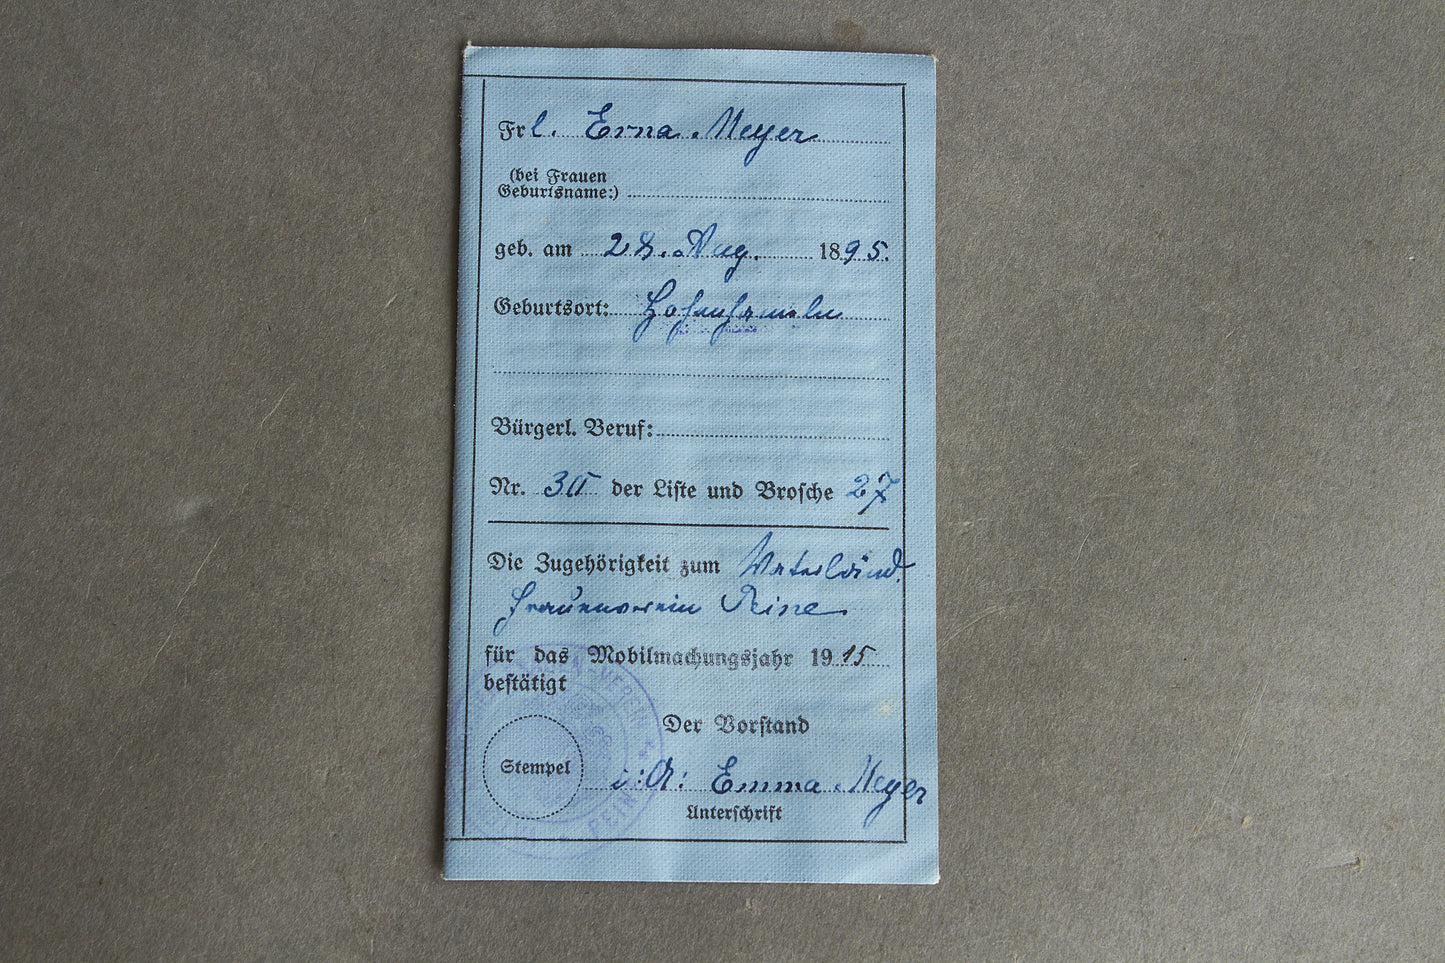 Frl. Erna Meyer
(bei Frauen
Geburtsname:)
geb. am 28. Aug. 1895.
Geburtsort: Hohenhameln
Bürgerl. Beruf:
Nr. der Liste und Brosche 27
Die Zugehörigkeit zum Vaterländ.
Frauenverein Peine
für das Mobilmachungsjahr 1915
bestätigt
Der Vorstand
Stempel
i: A: Emma Meyer
Unterschrift
VEREIN
PEINE